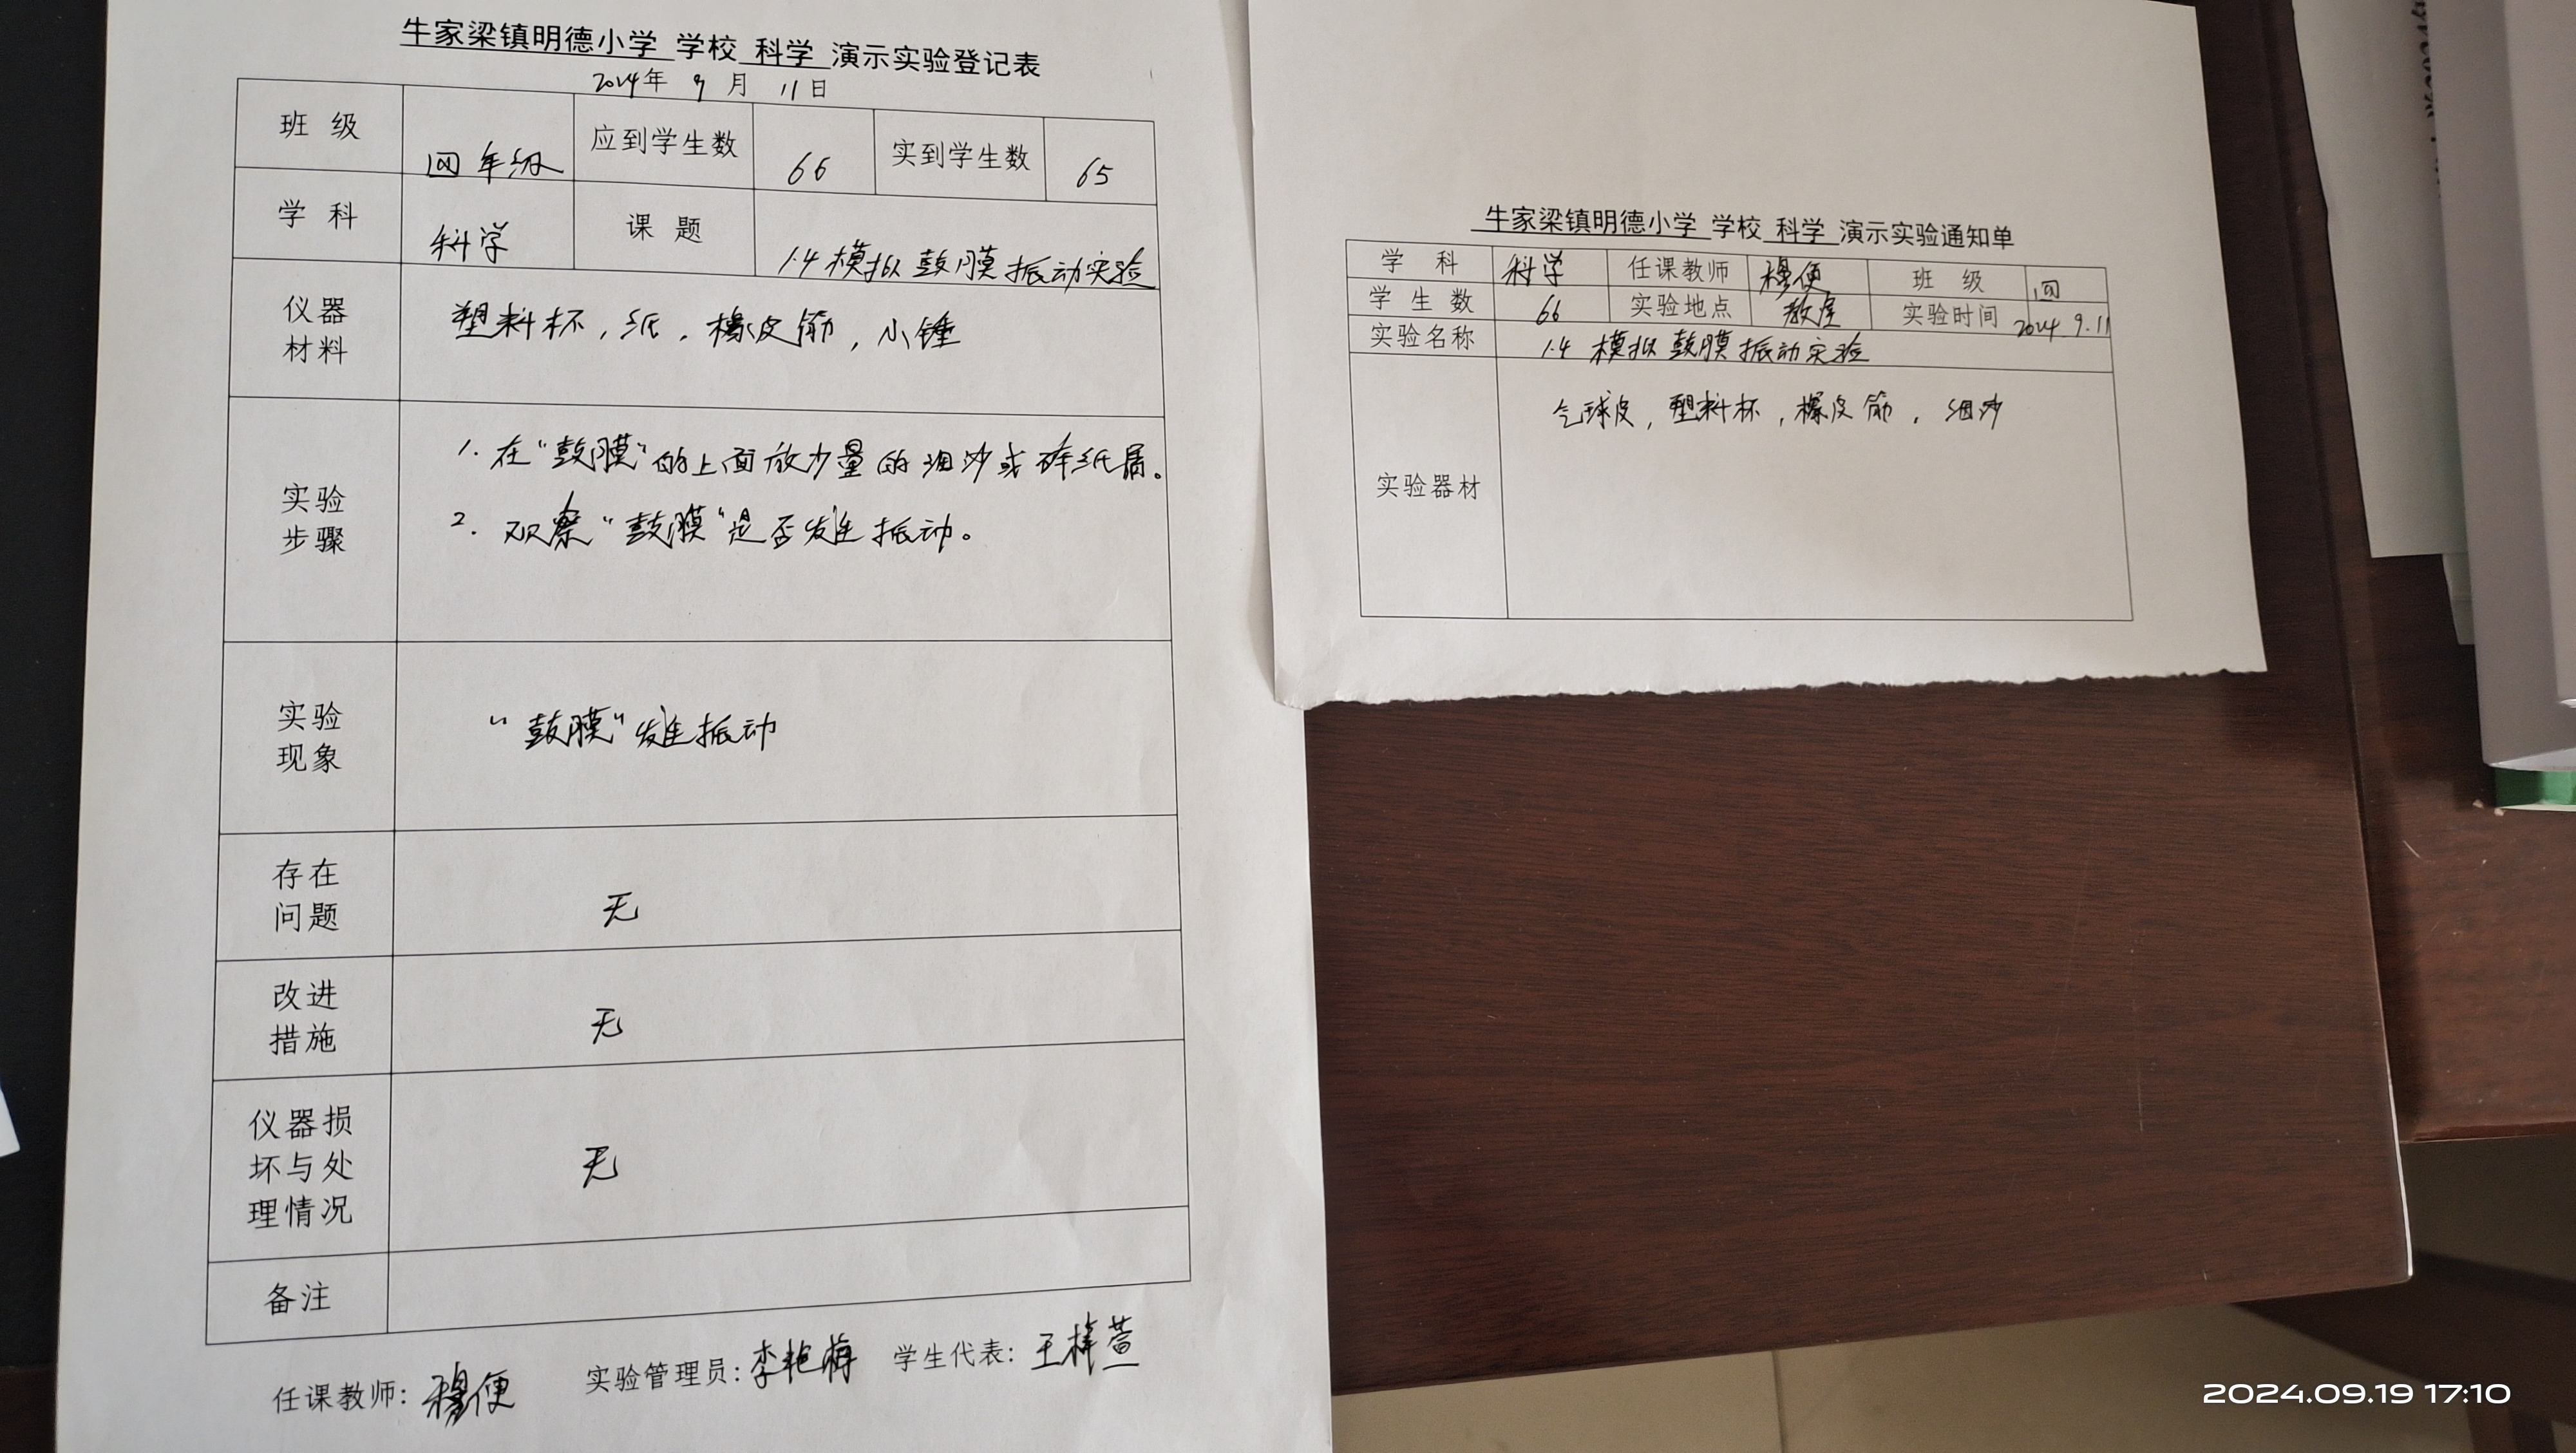 牛家梁镇明德小学 学校 科学 演示实验登记表
2024年 9 月 11日
班 级 四年级 应到学生数 66 实到学生数 65
学 科 科学 课 题 1.4 模拟鼓膜振动实验
仪器
材料
塑料杯，纸，橡皮筋，小锤
实验
步骤
1. 在“鼓膜”的上面放少量的细沙或碎纸屑。
2. 观察“鼓膜”是否发生振动。
实验
现象
“鼓膜”发生振动
存在
问题
无
改进
措施
无
仪器损
坏与处
理情况
无
备注
任课教师: 穆便 实验管理员: 李艳梅 学生代表: 王梓萱
牛家梁镇明德小学 学校 科学 演示实验通知单
学 科 科学 任课教师 穆便 班 级 四
学 生 数 66 实验地点 教室 实验时间 2024.9.11
实验名称 1.4 模拟鼓膜振动实验
实验器材
气球皮，塑料杯，橡皮筋，细沙
2024.09.19 17:10